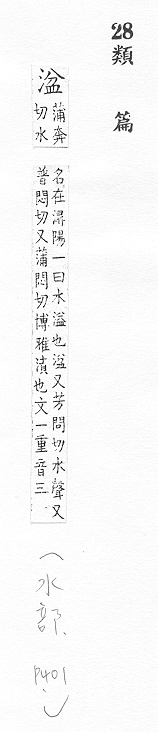 28類篇
湓 蒲奔切水
名在潯陽一曰水溢也湓又芳問切水聲又
普悶切又蒲悶切博雅漬也文一重音三
(水部、P401)